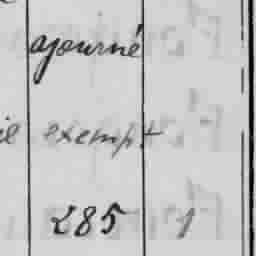 ajourné
exempt
285 1